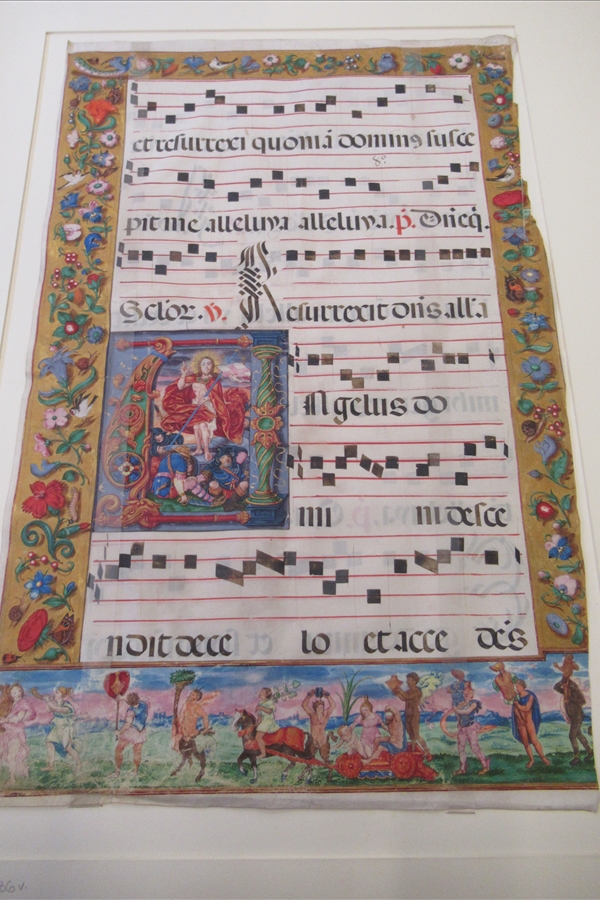 et resurrexi quoniā dominꝯ susce
pit me alleluya alleluya. p̄. Om̄eq̄.
Sclōr. v̄. Resurrexit dn̄s all'a
Angelus do
mi ni desce
ndit de ce lo et acce dēs
86 v.